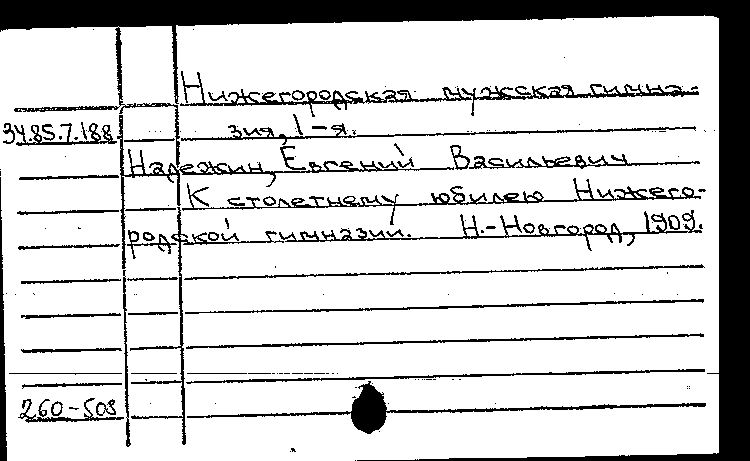 Нижегородская мужская гимна-
34.85.7.188. зия, 1-я.
Надежин, Евгений Васильевич
К столетнему юбилею Нижего-
родской гимназии. Н.-Новгород, 1909.
260-508